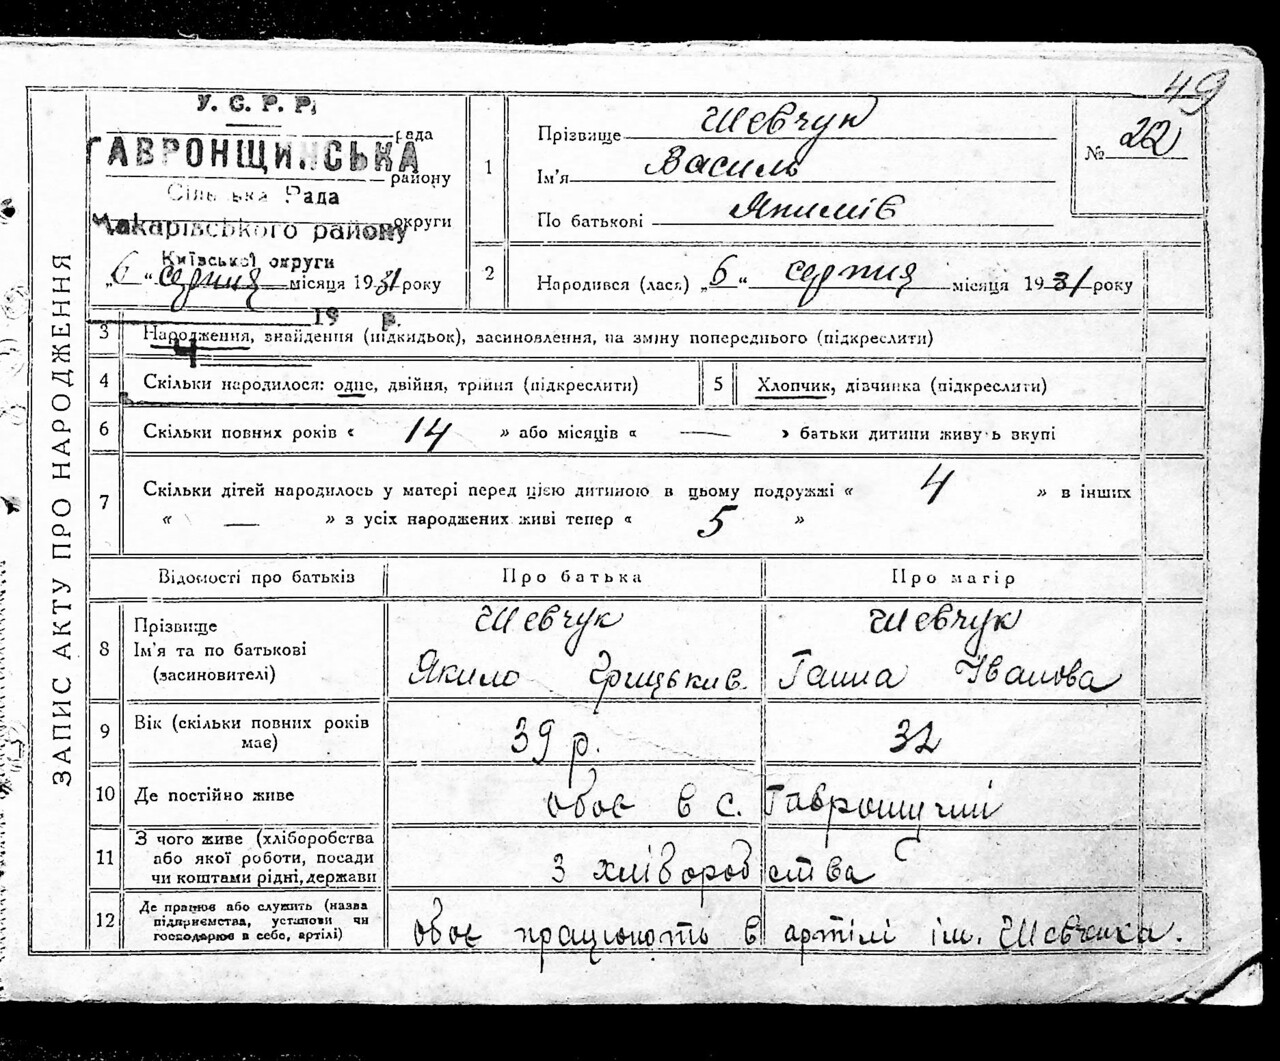 49
У. С. Р. Р.
рада
ГАВРОНЩИНСЬКА
району
Сільська Рада
округи
Макарівського району
Київської округи
„6“ серпня місяця 1931 року
19 р.
4
ЗАПИС АКТУ ПРО НАРОДЖЕННЯ
1
Прізвище Шевчук
Ім'я Василь
По батькові Якимів
№ 22
2
Народився (лася) „6“ серпня місяця 1931 року
3 Народження, знайдення (підкидьок), засиновлення, на зміну попереднього (підкреслити)
4 Скільки народилося: одне, двійня, трійня (підкреслити)
5 Хлопчик, дівчинка (підкреслити)
6 Скільки повних років « 14 » або місяців « — » батьки дитини живуть вкупі
7 Скільки дітей народилось у матері перед цією дитиною в цьому подружжі « 4 » в інших
« — » з усіх народжених живі тепер « 5 »
Відомості про батьків Про батька Про матір
8 Прізвище
Ім'я та по батькові
(засиновителі)
Шевчук
Якимо Грицьків.
Шевчук
Ганна Іванова
9 Вік (скільки повних років
має)
39 р.
32
10 Де постійно живе обоє в с. Гавронщині
11 З чого живе (хліборобства
або якої роботи, посади
чи коштами рідні, держави
з хліборобства
12 Де працює або служить (назва
підприємства, установи чи
господарює в себе, артілі)
обоє працюють в артілі ім. Шевченка.